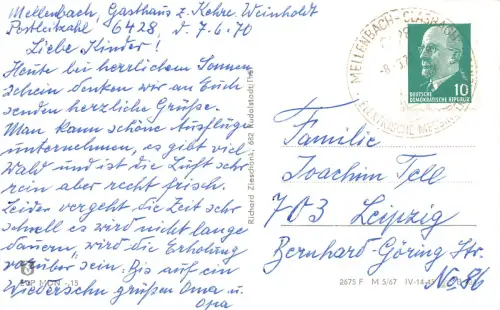 Mellenbach, Gasthaus z. Kehre. Weinholdt
Postleitzahl 6428, d. 7.6.70
Liebe Kinder!
Heute bei herrlichem Sonnen
schein denken wir an Euch
senden herzliche Grüße.
Man kann schöne Ausflüge
unternehmen, es gibt viel
Wald und ist die Luft sehr
rein aber recht frisch.
Leider vergeht die Zeit sehr
schnell es wird nicht lange
dauern, wird die Erholung
vorüber sein. Bis auf ein
Wiedersehn grüßen Oma u.
Opa
EVP MDN -.15
Richard Zieschank, 682 Rudolstadt/Th.
MELLENBACH-GLASBACH
10
DEUTSCHE
DEMOKRATISCHE REPUBLIK
Familie
Joachim Tell
703 Leipzig
Bernhard-Göring Str.
No. 86
2675 F M 5/67 IV-14-45